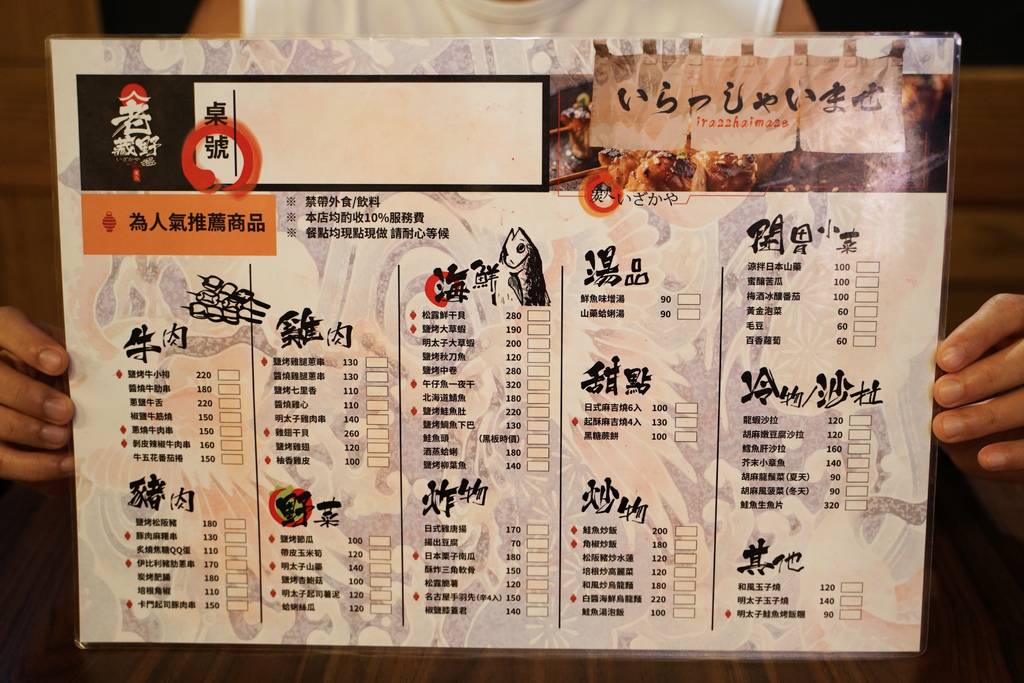 老
野
藏
いざかや
桌號
いらっしゃいませ
irasshaimase
いざかや
為人氣推薦商品
※ 禁帶外食/飲料
※ 本店均酌收10%服務費
※ 餐點均現點現做 請耐心等候
牛肉
鹽烤牛小排 220
醬燒牛肋串 180
蔥鹽牛舌 220
椒鹽牛筋燒 150
蔥燒牛肉串 150
剝皮辣椒牛肉串 160
牛五花番茄捲 150
豬肉
鹽烤松阪豬 180
豚肉麻糬串 130
炙燒焦糖QQ蛋 110
伊比利豬肋蔥串 170
炭烤肥腸 180
培根角椒 110
卡門起司豚肉串 150
雞肉
鹽烤雞腿蔥串 130
醬燒雞腿蔥串 130
鹽烤七里香 110
醬燒雞心 110
明太子雞肉串 140
雞翅干貝 260
鹽烤雞翅 120
柚香雞皮 100
野菜
鹽烤節瓜 100
帶皮玉米筍 120
明太子山藥 140
鹽烤杏鮑菇 100
明太子起司薯泥 120
蛤蜊絲瓜 120
海鮮
松露鮮干貝 280
鹽烤大草蝦 190
明太子大草蝦 200
鹽烤秋刀魚 120
鹽烤中卷 280
午仔魚一夜干 320
北海道鯖魚 180
鹽烤鮭魚肚 220
鹽烤鯛魚下巴 130
鮭魚頭 (黑板時價)
酒蒸蛤蜊 180
鹽烤柳葉魚 140
炸物
日式雞唐揚 170
揚出豆腐 70
日本栗子南瓜 180
酥炸三角軟骨 150
松露脆薯 120
名古屋手羽先(辛4入) 150
椒鹽膝蓋君 140
湯品
鮮魚味增湯 90
山藥蛤蜊湯 90
甜點
日式麻吉燒6入 100
起酥麻吉燒4入 130
黑糖蕨餅 100
炒物
鮭魚炒飯 200
角椒炒飯 180
松阪豬炒水蓮 120
培根炒高麗菜 120
和風炒烏龍麵 180
白醬海鮮烏龍麵 220
鮭魚湯泡飯 100
開胃小菜
涼拌日本山藥 100
蜜釀苦瓜 100
梅酒冰釀番茄 100
黃金泡菜 60
毛豆 60
百香蘿蔔 60
冷物/沙拉
龍蝦沙拉 120
胡麻嫩豆腐沙拉 120
鱈魚肝沙拉 160
芥末小章魚 140
胡麻龍鬚菜(夏天) 90
胡麻風菠菜(冬天) 90
鮭魚生魚片 320
其他
和風玉子燒 120
明太子玉子燒 140
明太子鮭魚烤飯糰 90